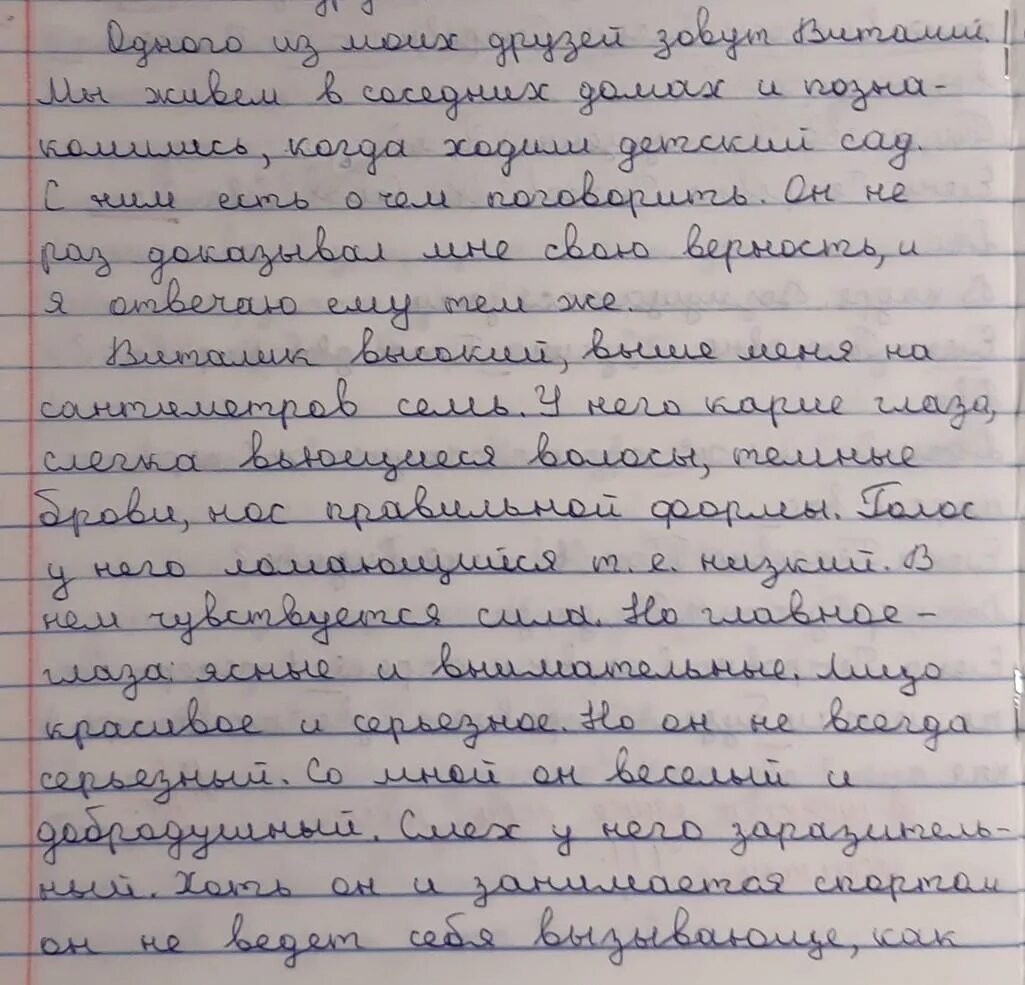 Одного из моих друзей зовут Виталий.
Мы живем в соседних домах и позна-
комились, когда ходили детский сад.
С ним есть о чем поговорить. Он не
раз доказывал мне свою верность, и
я отвечаю ему тем же.
Виталик высокий, выше меня на
сантиметров семь. У него карие глаза,
слегка вьющиеся волосы, темные
брови, нос правильной формы. Голос
у него ломающийся т. е. низкий. В
нем чувствуется сила. Но главное -
глаза: ясные и внимательные. Лицо
красивое и серьезное. Но он не всегда
серьезный. Со мной он веселый и
добродушный. Смех у него заразитель-
ный. Хоть он и занимается спортом
он не ведет себя вызывающе, как